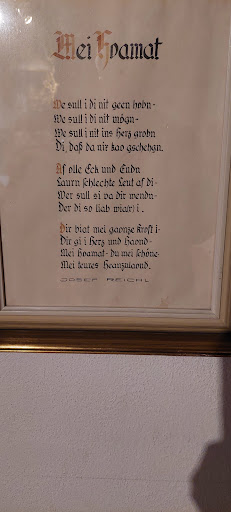 Mei Hoamat
We sull i di nit geen hobn-
We sull i di nit mögn-
We sull i nit ins Herz grobn
Di, daß da nix kao gschehgn.
Af olle Eck und Endn
Laurn schlechte Leut af di-
Wer sull si va dir wendn-
Der di so liab wia(r) i.
Dir biat mei gaonze Kroft i-
Dir gi i Herz und Haond-
Mei Hoamat- du mei schöne-
Mei teures Heanznlaond.
JOSEF REICHL